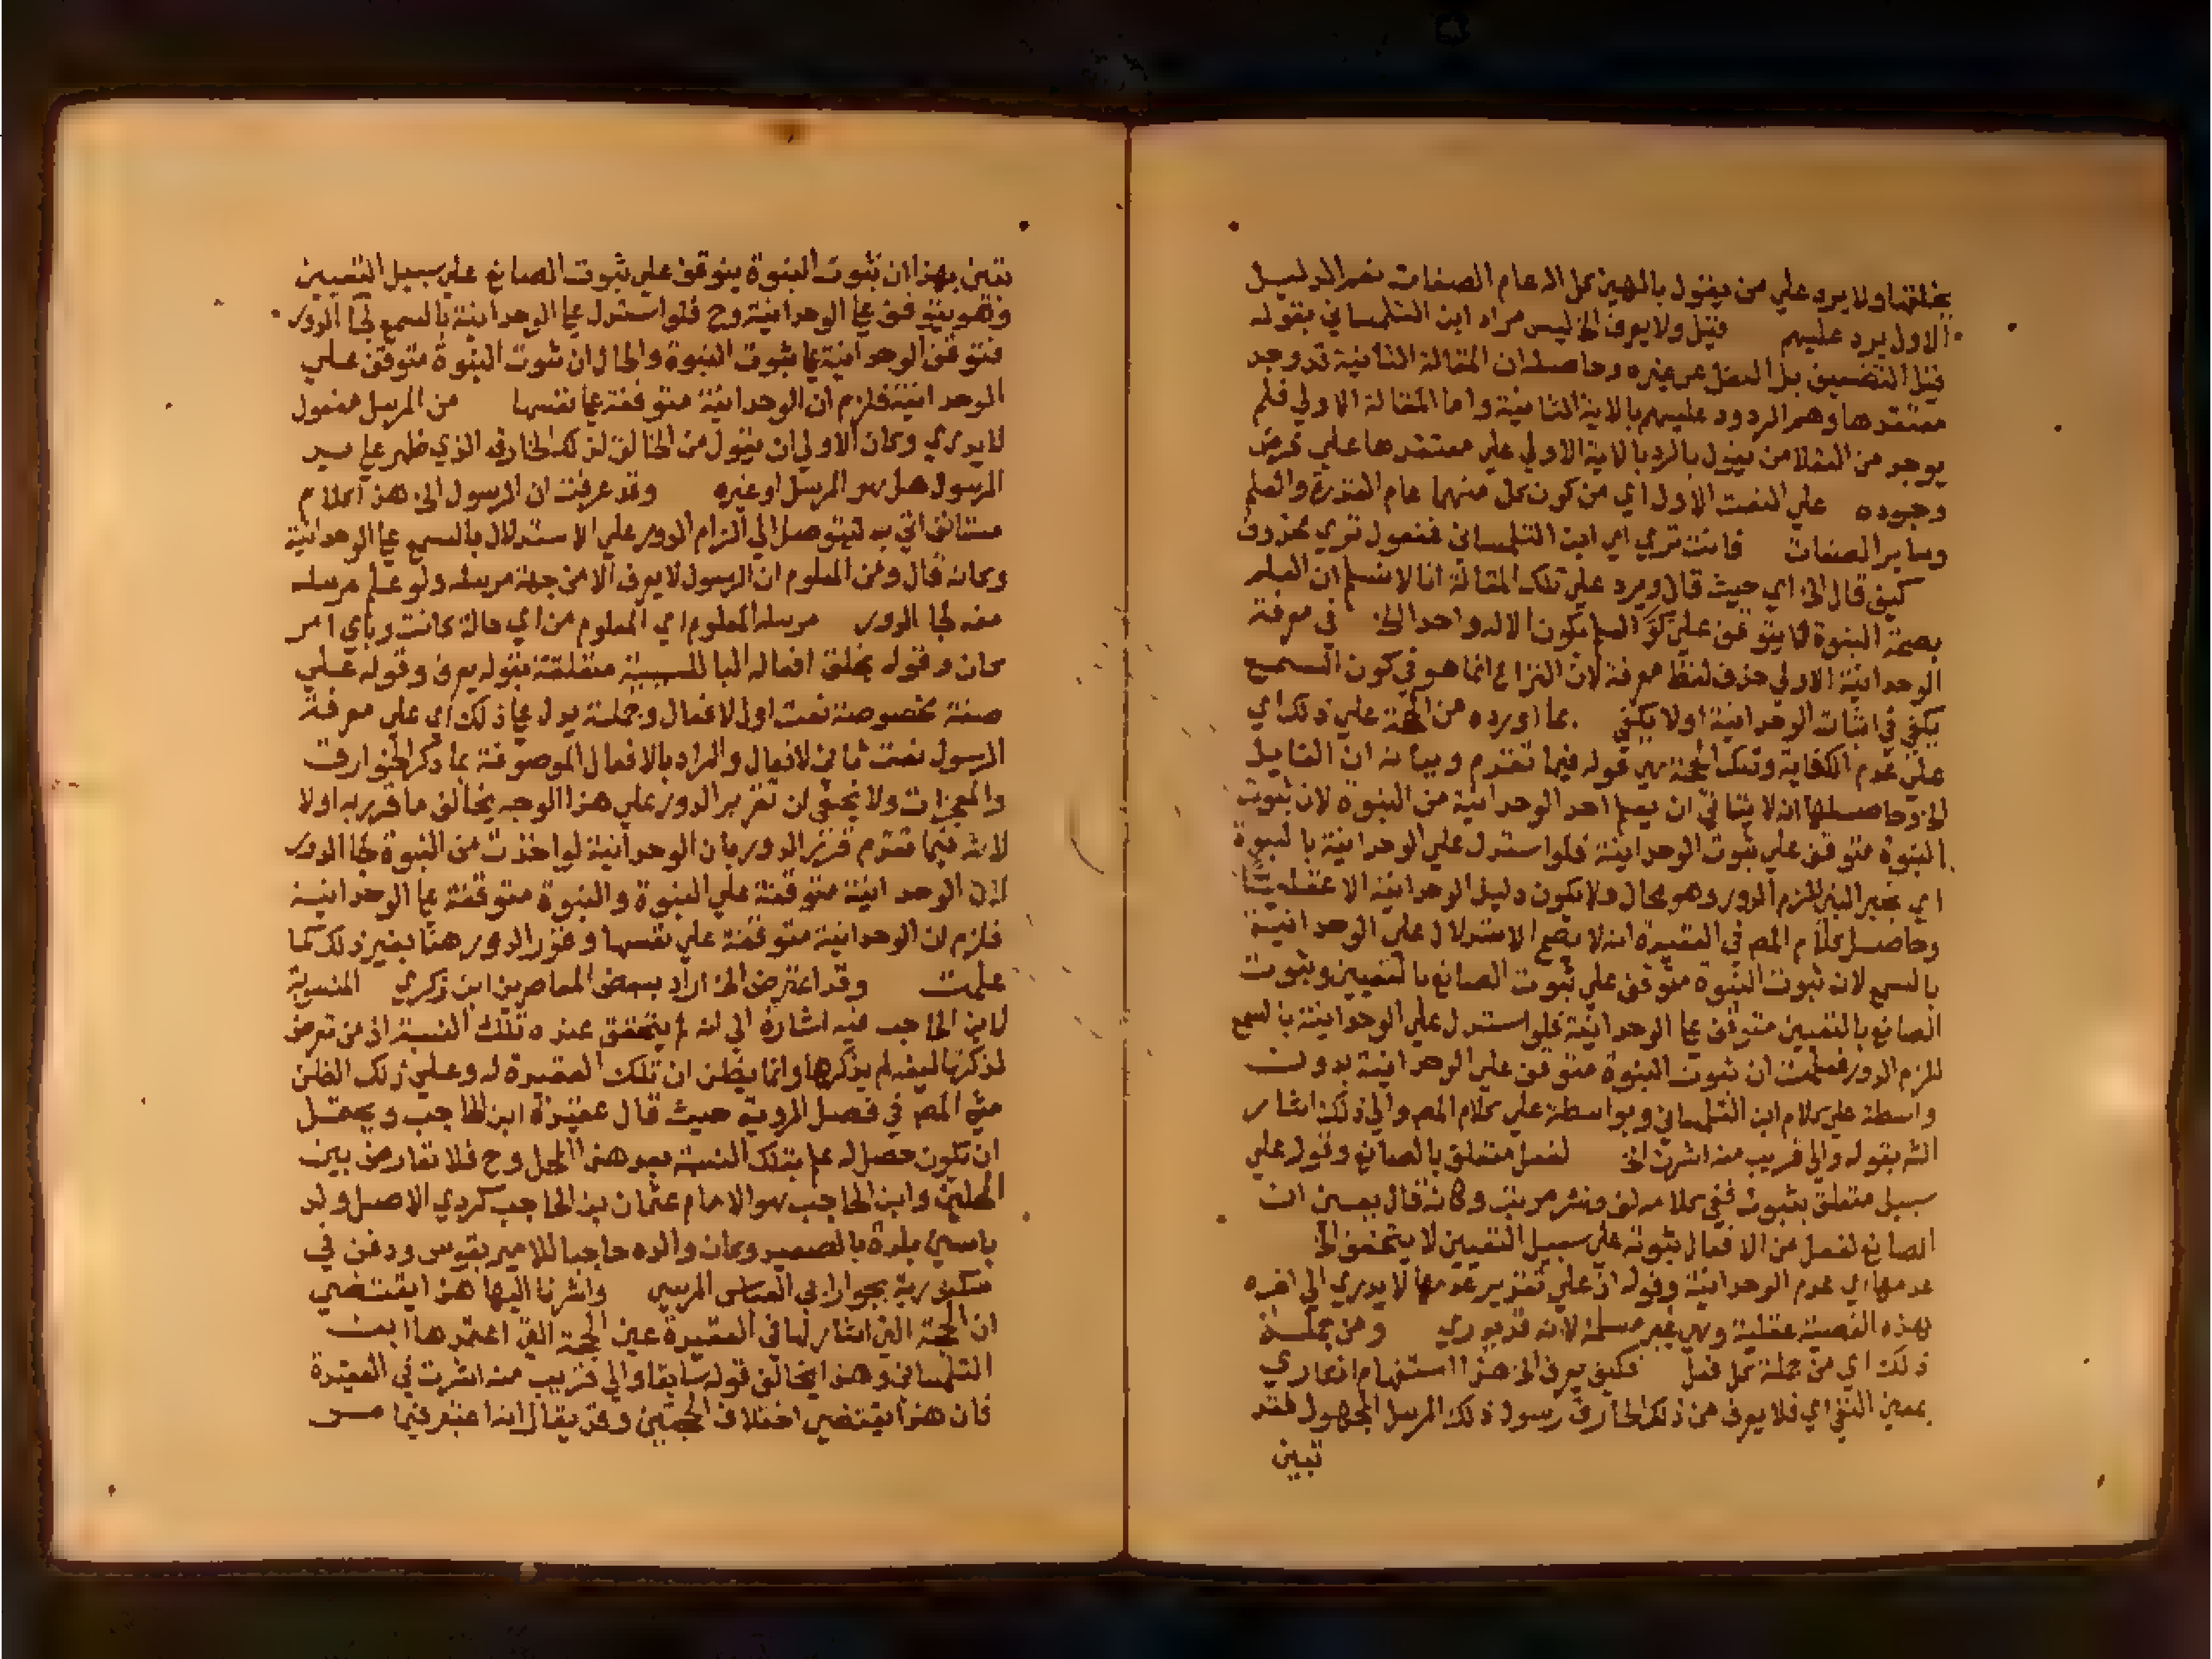 بخلقها ولا يرد علي من يقول بالهين كل اله عام الصفات نعم الدليل
الاول يرد عليهم قيل ولا يعرف الخ ليس مراد ابن التلمساني بقوله
قيل التضعيف بل النقل عن غيره وحاصله ان المقالة الثانية قد وجد
معتقدها وهم المردود عليهم بالاية الثانية واما المقالة الاولي فلم
يوجد من العقلا من يقول بالرد بالاية الاولي علي معتقدها علي فرض
وجوده علي النعت الاول اي من كون كل منهما عام القدرة والعلم
وساير الصفات فانت تري اي ابن التلمساني فمفعول تري محذوف
كيف قال الخ اي حيث قال ويرد علي تلك المقالة انا لا نسلم ان العلم
بصحة النبوة لا يتوقف علي العلم بكون الاله واحد الخ في معرفة
الوحدانية الاولي حذف لفظ معرفة لان النزاع انما هو في كون السمع
يكفي في اثبات الوحدانية اولا يكفي بما اورده من الحجة علي ذلك اي
علي عدم الكفاية وتلك الحجة هي قوله فيما تقدم وبيانه ان القايل
الخ وحاصلها انه لا يتاتي ان يعلم احد الوحدانية من النبوة لان ثبوت
النبوة متوقف علي ثبوت الوحدانية فلو استدل علي الوحدانية بالنبوة
اي بخبر النبي للزم الدور وهو محال ولا يكون دليل الوحدانية الا عقليا
وحاصل كلام المص في العقيدة انه لا يصح الاستدلال علي الوحدانية
بالسمع لان ثبوت النبوة متوقف علي ثبوت الصانع بالتعيين وثبوت
الصانع بالتعيين متوقف علي الوحدانية فلو استدل علي الوحدانية بالسمع
للزم الدور فعلمت ان ثبوت النبوة متوقف علي الوحدانية بدون
واسطة علي كلام ابن التلمساني وبواسطة علي كلام المص والي ذلك اشار
الش بقوله والي قريب منه اشرت الخ لفعل متعلق بالصانع وقوله علي
سبيل متعلق بثبوت ففي كلامه لف ونشر مرتب وكانه قال بعين ان
الصانع لفعل من الافعال ثبوته علي سبيل التعيين لا يتحقق الخ
عدمها اي عدم الوحدانية وقوله اذ علي تقدير عدمها لا يدري الي اخره
هذه القضية عقلية وهي غير مسلمة لانه قد يدري ومن جملة
ذلك اي من جملة كل فعل فكيف يعرف الخ هذا استفهام انكاري
بمعني النفي اي فلا يعرف من ذلك الخارق رسول ذلك المرسل المجهول فقد
تبين
تبين بهذا ان ثبوت النبوة يتوقف علي ثبوت الصانع علي سبيل التعيين
وهو يتوقف علي الوحدانية وح فلو استدل علي الوحدانية بالسمع لجا الدور
فتوقف الوحدانية علي ثبوت النبوة والحال ان ثبوت النبوة متوقف علي
الوحدانية فلزم ان الوحدانية متوقفة علي نفسها من المرسل مفعول
لا يدري وكان الاولي ان يقول من الخالق لذلك الخارق الذي ظهر علي يد
الرسول هل هو المرسل او غيره وقد عرفت ان الرسول الخ هذا كلام
مستانف اتي به ليتوصل الي الزام الدور علي الاستدلال بالسمع علي الوحدانية
وكانه قال ومن المعلوم ان الرسول لا يعرف الا من جهة مرسله ولو علم مرسله
منه لجا الدور مرسله المعلوم اي المعلوم من اي حالة كانت وباي امر
كان وقوله بخلق افعاله البا للسببية متعلقة بقوله يعرف وقوله علي
صفة مخصوصة نعت اول لافعال وجملة يدل علي ذلك اي علي معرفة
الرسول نعت ثاني لافعال والمراد بالافعال الموصوفة بما ذكر الخوارق
والمعجزات ولا يخفي ان تقرير الدور علي هذا الوجه يخالف ما قرر به اولا
لانه فيما تقدم قرر الدور بان الوحدانية لو اخذت من النبوة لجا الدور
لان الوحدانية متوقفة علي النبوة والنبوة متوقفة علي الوحدانية
فلزم ان الوحدانية متوقفة علي نفسها وقرر الدور هنا بغير ذلك كما
علمت وقد اعترض الخ اراد ببعض المعاصرين ابن زكري المنسوبة
لابن الحاجب فيه اشارة الي انه لم يتحقق عنده تلك النسبة اذ من تعرض
لذكر تاليفه لم يذكرها وانما يظن ان تلك العقيدة له وعلي ذلك الظن
مشي المص في فصل الرؤية حيث قال عقيدة ابن الحاجب ويحتمل
ان تكون حصل له علم بتلك النسبة بعد هذا المحل وح فلا تعارض بين
المحلين وابن الحاجب هو الامام عثمان بن الحاجب كردي الاصل ولد
باسني بلدة بالصعيد وكان والده حاجبا للامير بقوس ودفن في
سكندرية بجوار ابي العباس المرسي واشرنا اليها هذا يقتضي
ان الحجة التي اشار لها في العقيدة عين الحجة التي اعتمدها ابن
التلمساني وهذا يخالف قوله سابقا والي قريب منه اشرت في العقيدة
فان هذا يقتضي اختلاف الحجتين وقد يقال انه اعتبر فيما مر